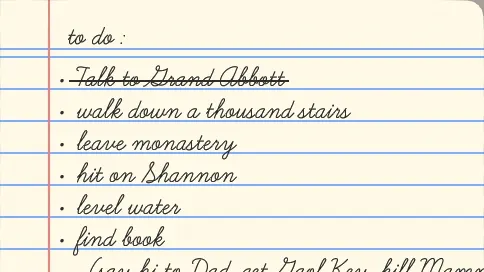 to do :
• Talk to Grand Abbott
• walk down a thousand stairs
• leave monastery
• hit on Shannon
• level water
• find book
(say hi to Dad, get Gaol Key, kill Mamm